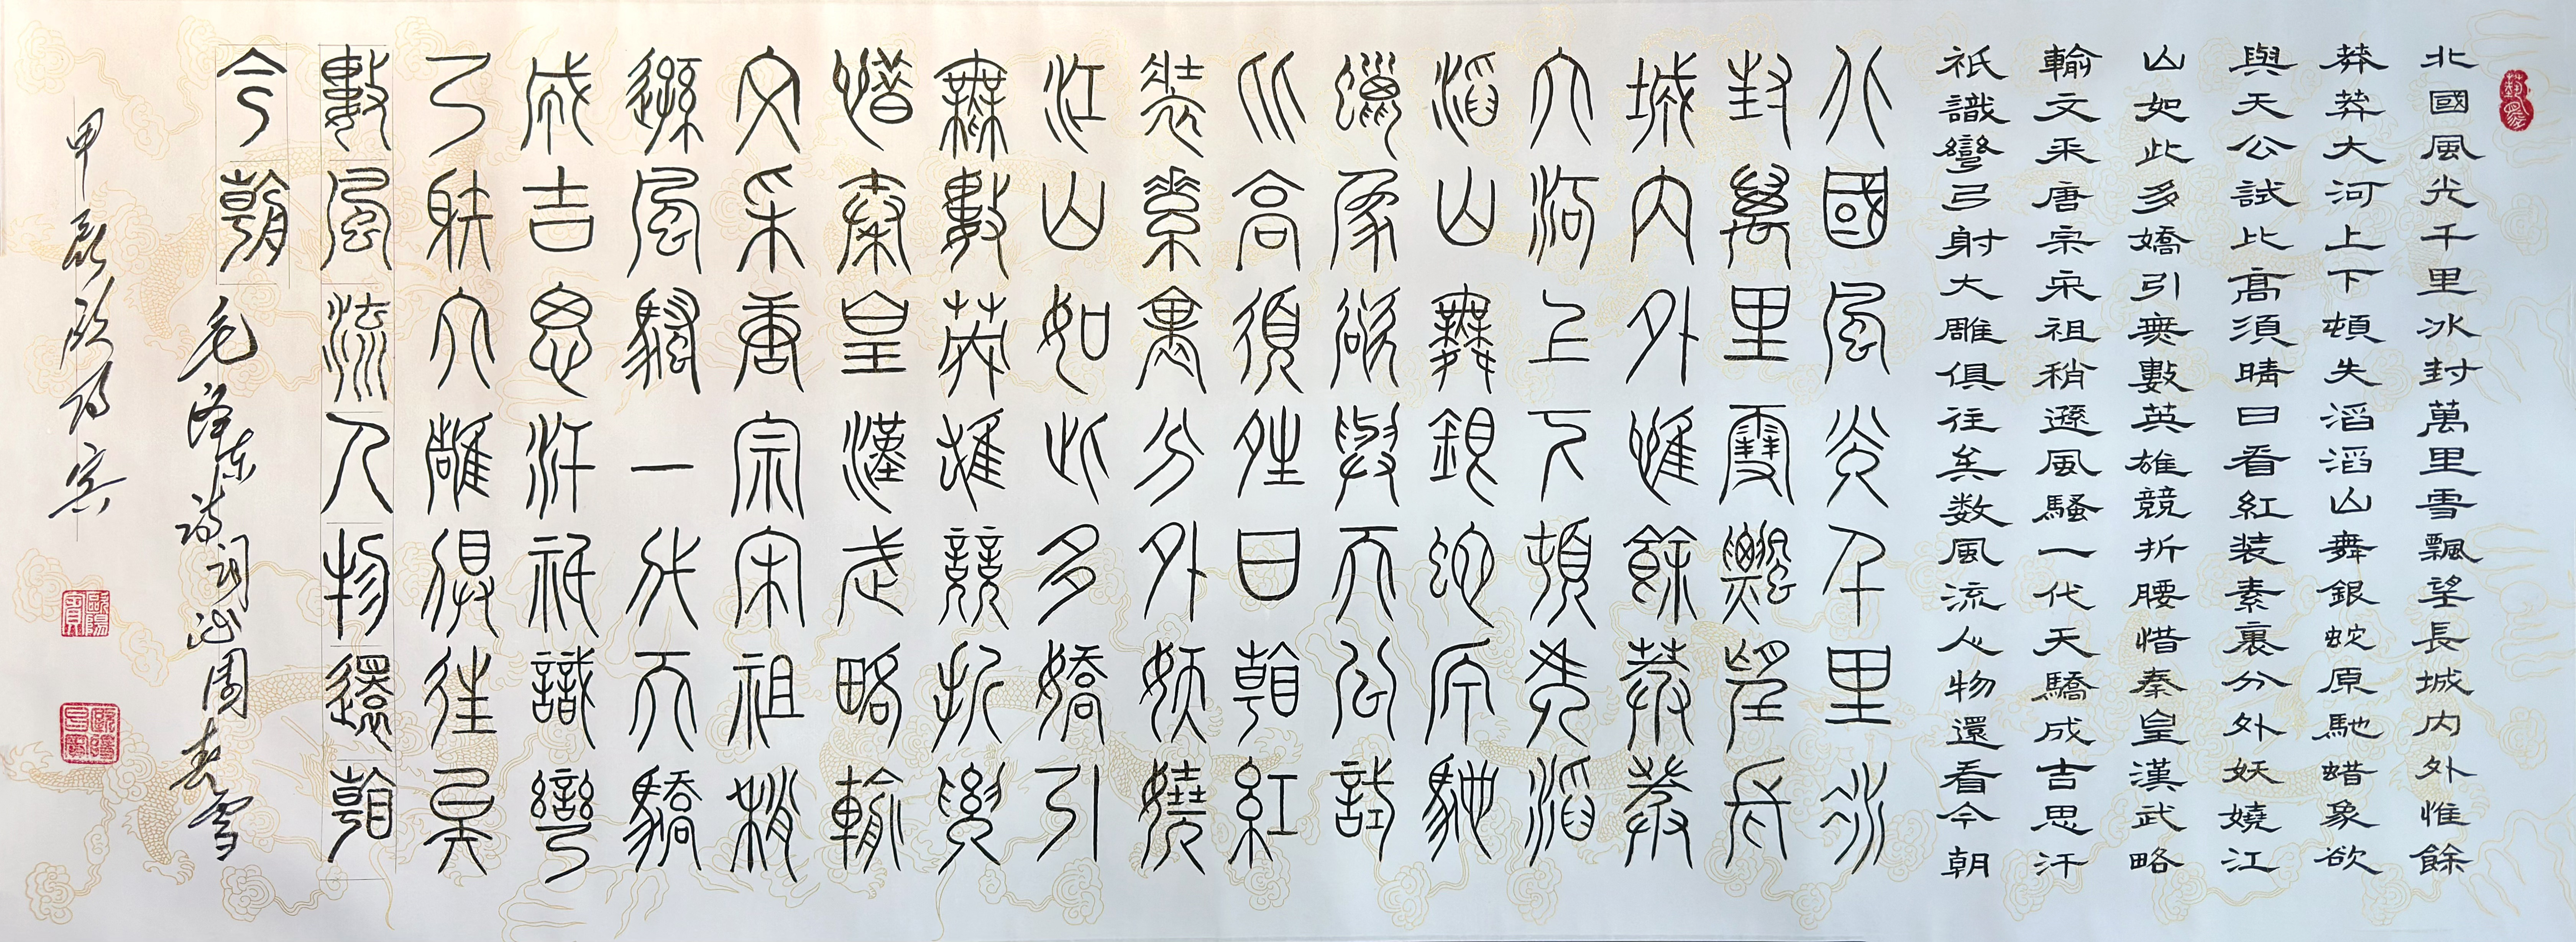 北國風光千里冰封萬里雪飄望長城内外惟餘
莽莽大河上下頓失滔滔山舞銀蛇原馳蜡象欲
與天公試比高須晴日看紅装素裹分外妖嬈江
山如此多嬌引無數英雄競折腰惜秦皇漢武略
輸文采唐宗宋祖稍遜風騷一代天驕成吉思汗
祇識彎弓射大雕俱往矣数風流人物還看今朝
北國風光千里冰
封萬里雪飄望長
城内外惟餘莽莽
大河上下頓失滔
滔山舞銀蛇原馳
蠟象欲與天公試
比高須晴日看紅
裝素裹分外妖嬈
江山如此多嬌引
無數英雄競折腰
惜秦皇漢武略輸
文采唐宗宋祖稍
遜風騷一代天驕
成吉思汗祇識彎
弓射大雕俱往矣
數風流人物還看
今朝
毛泽东诗词沁園春雪
甲辰欧阳宾